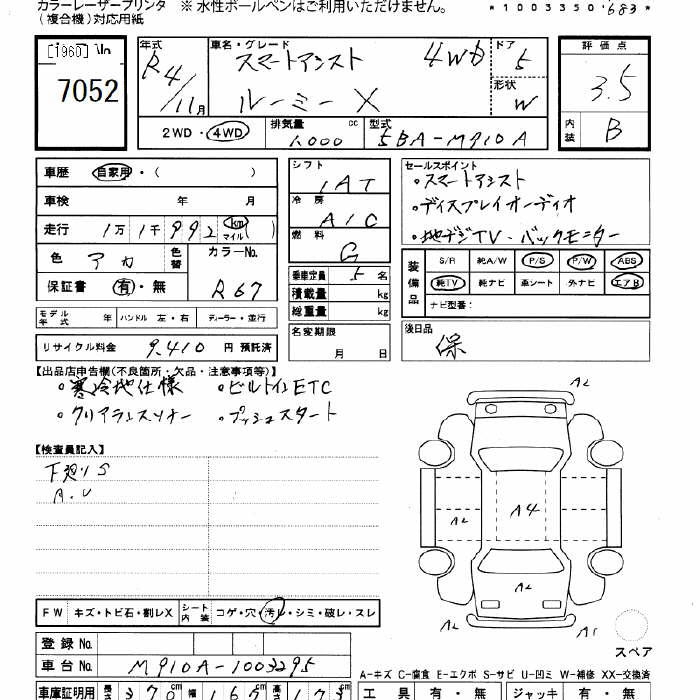 カラーレーザープリンタ ※ 水性ボールペンはご利用いただけません。
(複合機)対応用紙
*1003350-683*
[1960]
7052
年式 R4/11月
車名・グレード スマートアシスト 4WD
ルーミー X
ドア 5
形状 W
評価点 3.5
内装 B
2WD・4WD
排気量 1,000 cc
型式 5BA-M910A
車歴 自家用・( )
車検 年 月
走行 1万 1千 992 (km マイル)
色 アカ 色替 カラーNo.
保証書 有・無 R67
モデル年式 年 ハンドル 左・右 ディーラー・並行
リサイクル料金 9,410 円 預託済
シフト IAT
冷房 A/C
燃料 G
乗車定員 5 名
積載量 kg
総重量 kg
名変期限
月 日
セールスポイント
・スマートアシスト
・ディスプレイオーディオ
・地デジTV・バックモニター
装備品 S/R 純A/W P/S P/W ABS
純TV 純ナビ 革シート 外ナビ エアB
ナビ型番:
後日品
保
【出品店申告欄(不良箇所・欠品・注意事項等)】
・寒冷地仕様 ・ビルトインETC
・クリアランスソナー ・プッシュスタート
【検査員記入】
下廻りS
A.U
A2
A2
A4
A2
A2
A1
スペア
FW キズ・トビ石・割レX シート内装 コゲ・穴・汚レ・シミ・破レ・スレ
登録No.
車台No. M910A-1003295
A-キズ C-腐食 E-エクボ S-サビ U-凹ミ W-補修 XX-交換済
車庫証明用 長さ 370 cm 幅 167 cm 高さ 173 cm
工具 有・無 ジャッキ 有・無